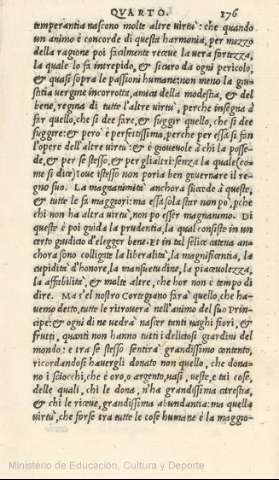 QVARTO. 176
temperantia nascono molte altre uirtu`: che quando
un animo è concorde di questa harmonia, per mezzo
della ragione poi facilmente riceue la uera fortezza,
la quale lo fa intrepido, & sicuro da ogni pericolo,
& quasi sopra le passioni humane: non meno la giu-
stitia uergine incorrotta, amica della modestia, & del
bene, regina di tutte l'altre uirtu`, perche insegna à
far quello, che si dee fare, & fuggir quello, che si dee
fuggire: & però è perfettissima, perche per essa si fan
l'opere dell'altre uirtu`: & è gioueuole à chi la possie-
de, & per se stesso, & per gli altri: senza la quale (co-
me si dice) Ioue istesso non poria ben gouernare il re-
gno suo. La magnanimità anchora succede à queste,
& tutte le fa maggiori: ma essa sola star non pò, pche
chi non ha altra uirtu`, non pò esser magnanimo. Di
queste è poi guida la prudentia, la qual consiste in un
certo giudicio d'elegger bene. Et in tal felice catena an
chora sono colligate la liberalità, la magnificentia, la
cupidità d'honore, la mansuetudine, la piaceuolezza,
la affabilità, & molte altre, che hor non è tempo di
dire. Ma s'el nostro Cortegiano farà quello, che ha-
uemo detto, tutte le ritrouerà nell'animo del suo Prin-
cipe: & ogni dì ne uedrà nascer tanti uaghi fiori, &
frutti, quanti non hanno tutti i deliciosi giardini del
mondo: e tra se stesso sentirà grandissimo contento,
ricordandosi hauergli donato non quello, che dona-
no i sciocchi, che è oro, o argento, uasi, ueste, e tai cose,
delle quali, chi le dona, n'ha grandissima carestia,
& chi le riceue, grandissima abundantia: ma quella
uirtu`, che forse tra tutte le cose humane è la maggio-
Ministerio de Educación, Cultura y Deporte